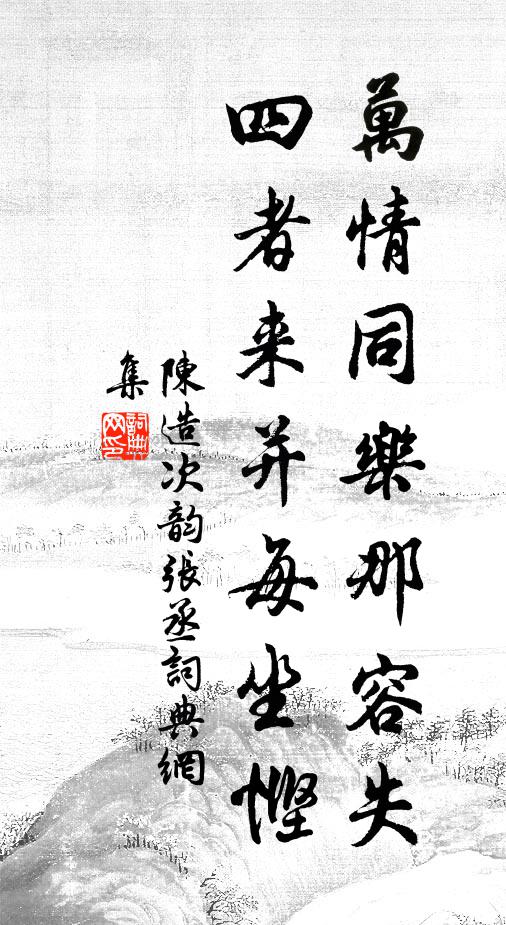 萬情同樂那容失
四者来并每坐慳
陳造次韵張丞詞典網
集
詞典網印